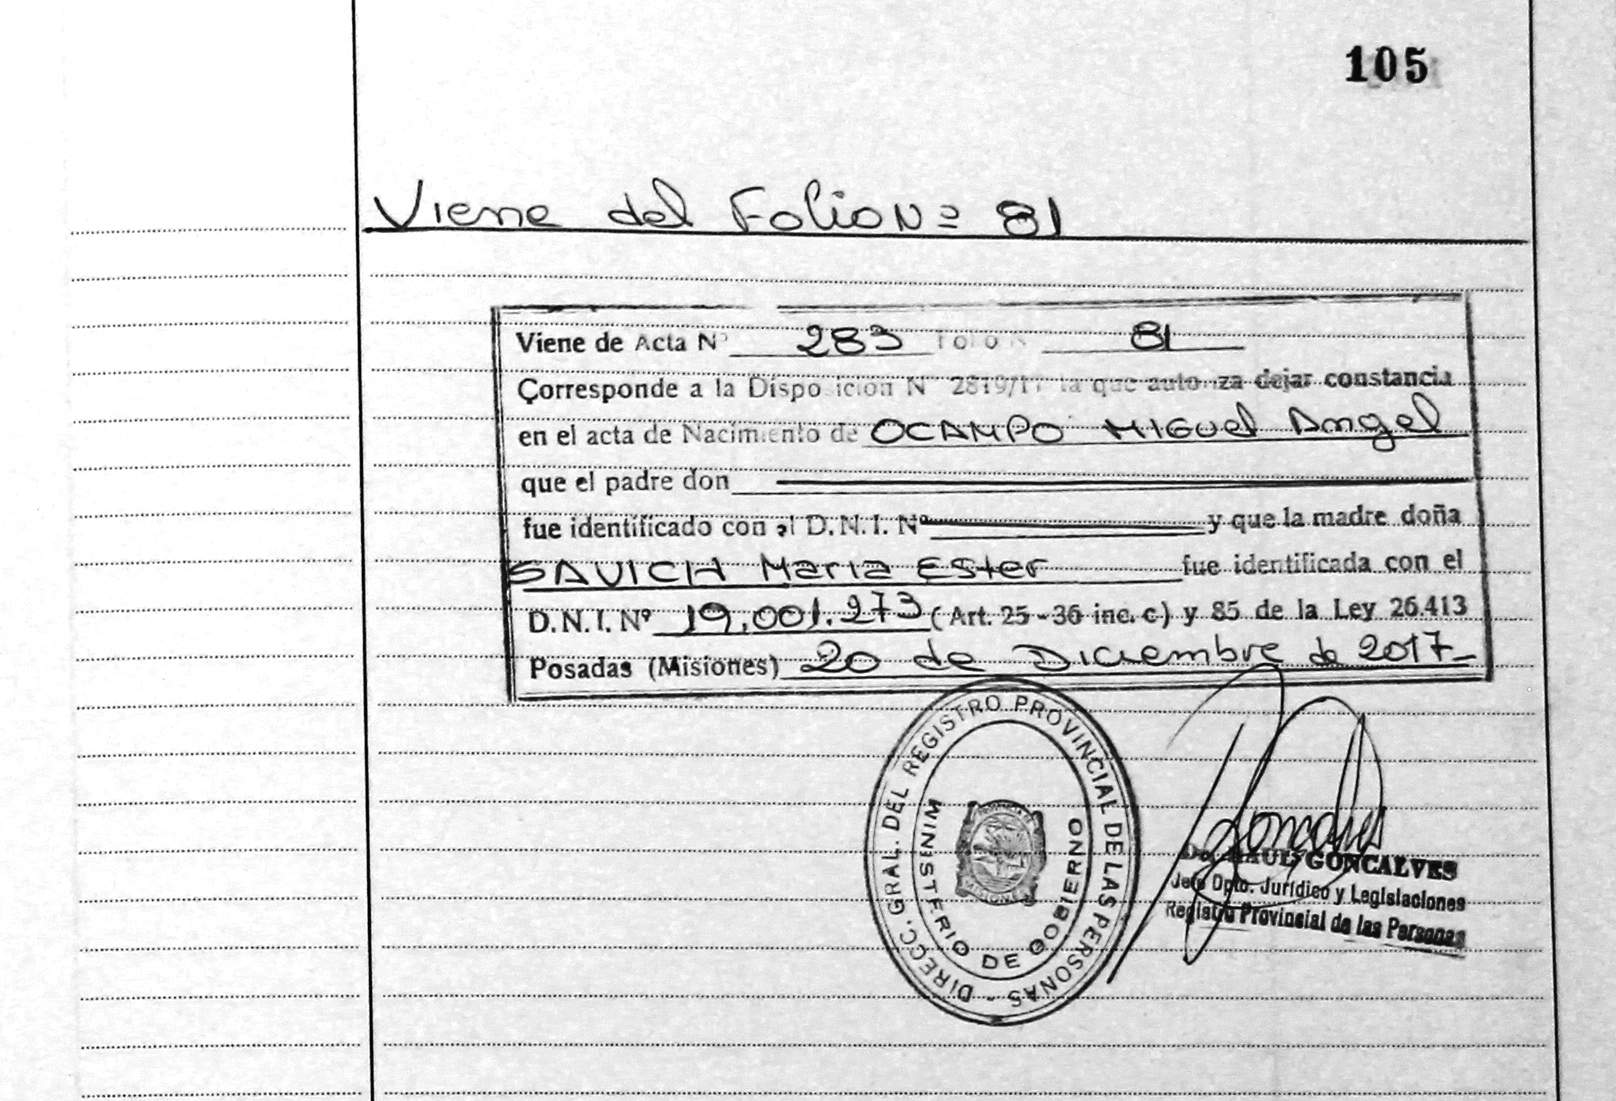 105
Viene del Folio Nº 81
Viene de Acta Nº 283 Folio N 81
Corresponde a la Disposicion N 2819/17 la que autoriza dejar constancia
en el acta de Nacimiento de OCAMPO MIGUEL Angel
que el padre don
fue identificado con el D.N.I. Nº y que la madre doña
SAVICH Maria Ester fue identificada con el
D.N.I. Nº 19.001.273 (Art. 25 - 36 inc. c) y 85 de la Ley 26.413
Posadas (Misiones) 20 de Diciembre de 2017-
DIRECC. GRAL. DEL REGISTRO PROVINCIAL DE LAS PERSONAS -
MINISTERIO DE GOBIERNO
MISIONES
RAUL GONCALVES
Jefe Dpto. Jurídico y Legislaciones
Registro Provincial de las Personas